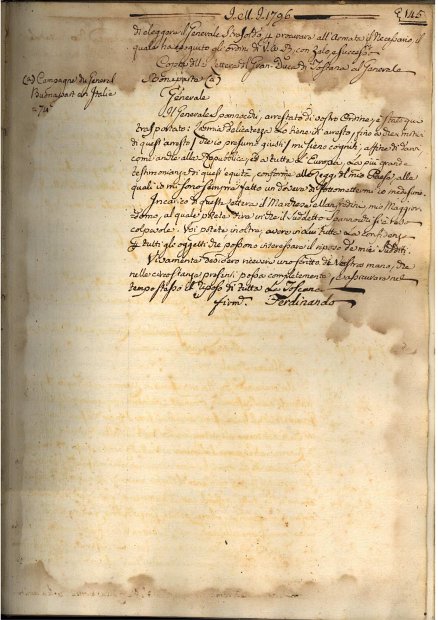 I.M.I. 1796
145
di eleggere il Generale per procurare all'Armata il Necessario, il
quale ha eseguito gli ordini di V.A.R. con Zelo, e successo
Copia della Lettera del Gran-Duca di Toscana al Generale
(a) Campagne du General
Buonapart en Italie
Bonaparte (a)
Générale
Il Generale Spannocchi, arrestato di vostro Ordine, è stato qua
trasportato: La mia delicatezza lo tiene in arresto, fino a che i motivi
di quest'arresto, che io presumo giusti, mi sieno cogniti, affine di darvi
come anche alla Repubblica, ed a tutta l'Europa, la più grande
testimonianza di quest'equità, conforme alle Leggi del mio Paese, alle
quali io mi sono sempre fatto un dovere di sottomettermi io medesimo.
Incarico di questa lettera il Marchese Manfredini, mio Maggior
Domo, al quale potete dire in che il suddetto Spannocchi si è fatto
colpevole. Voi potete inoltre, avere in lui tutta la confidenza
per tutti gli oggetti che possono interessare il riposo de' miei Sudditi.
Vivamente desidero ricevere uno scritto di Vostra mano, che
nelle circostanze presenti possa completamente, assicurare nel
tempo stesso il riposo di tutta La Toscana
firmo. Ferdinando